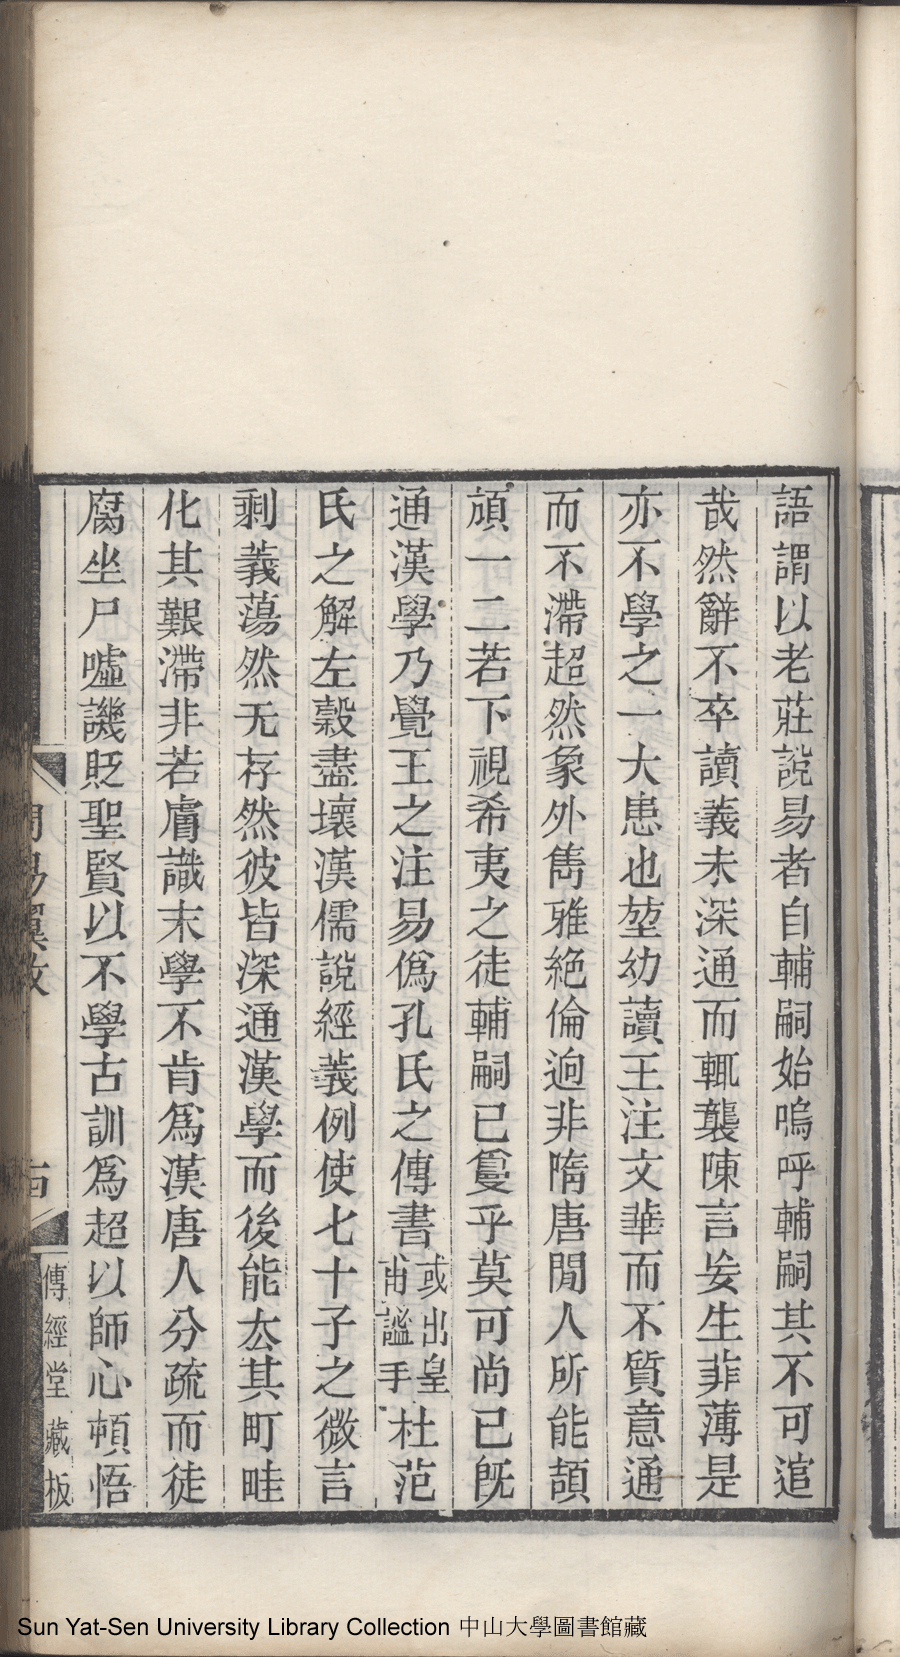 語謂以老莊說易者自輔嗣始嗚呼輔嗣其不可逭
哉然辭不卒讀義未深通而輒襲陳言妄生非薄是
亦不學之一大患也堃幼讀王注文華而不質意通
而不滯超然象外雋雅絕倫迥非隋唐閒人所能頡
頏一二若下視希夷之徒輔嗣已敻乎莫可尚已旣
通漢學乃覺王之注易僞孔氏之傳書或出皇甫謐手杜范
氏之解左穀盡壞漢儒說經義例使七十子之微言
剩義蕩然无存然彼皆深通漢學而後能厺其町畦
化其艱滯非若膚識末學不肯爲漢唐人分疏而徒
腐坐尸噓譏貶聖賢以不學古訓爲超以師心頓悟
傳經堂藏板
Sun Yat-Sen University Library Collection 中山大學圖書館藏